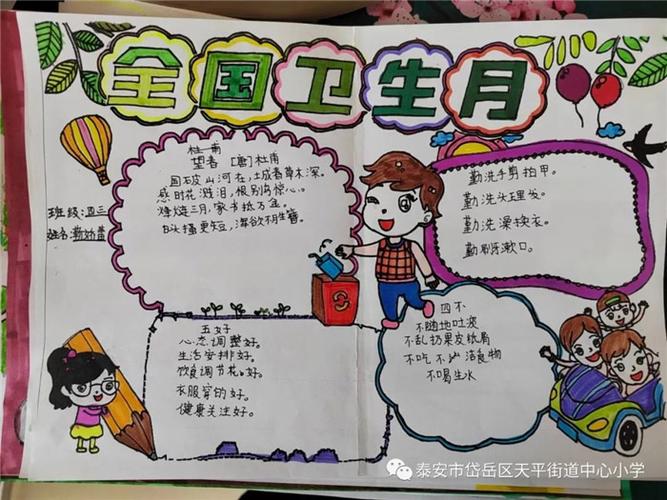 全国卫生月
杜甫
望春 [唐]杜甫
国破山河在,土成春草木深。
感时花溅泪,恨别鸟惊心。
烽火连三月,家书抵万金。
白头搔更短,浑欲不胜簪。
班级:四三
姓名:
勤洗手剪指甲。
勤洗头理发。
勤洗澡换衣。
勤刷牙漱口。
五好
心态调整好。
生活安排好。
饮食调节好。
衣服穿的好。
健康关注好。
四不
不随地吐痰
不乱扔果皮纸屑
不吃不洁食物
不喝生水
泰安市岱岳区天平街道中心小学